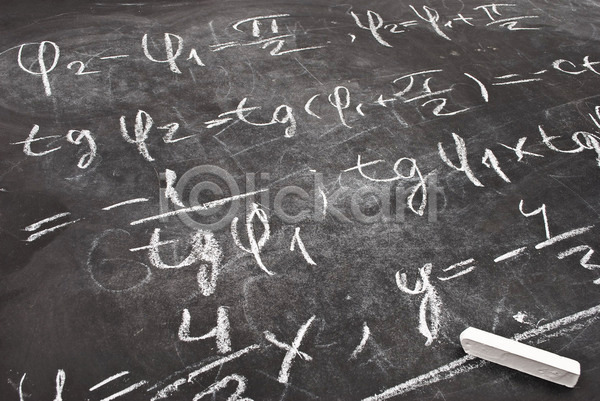 φ₂ - φ₁ = π/2 , φ₂ = φ₁ + π/2
tg φ₂ = tg (φ₁ + π/2) = - ct
= - 1/tgφ₁ , tg φ₁ × tg φ
y = - 4/3
y = - 4/3 x ,
iClickart